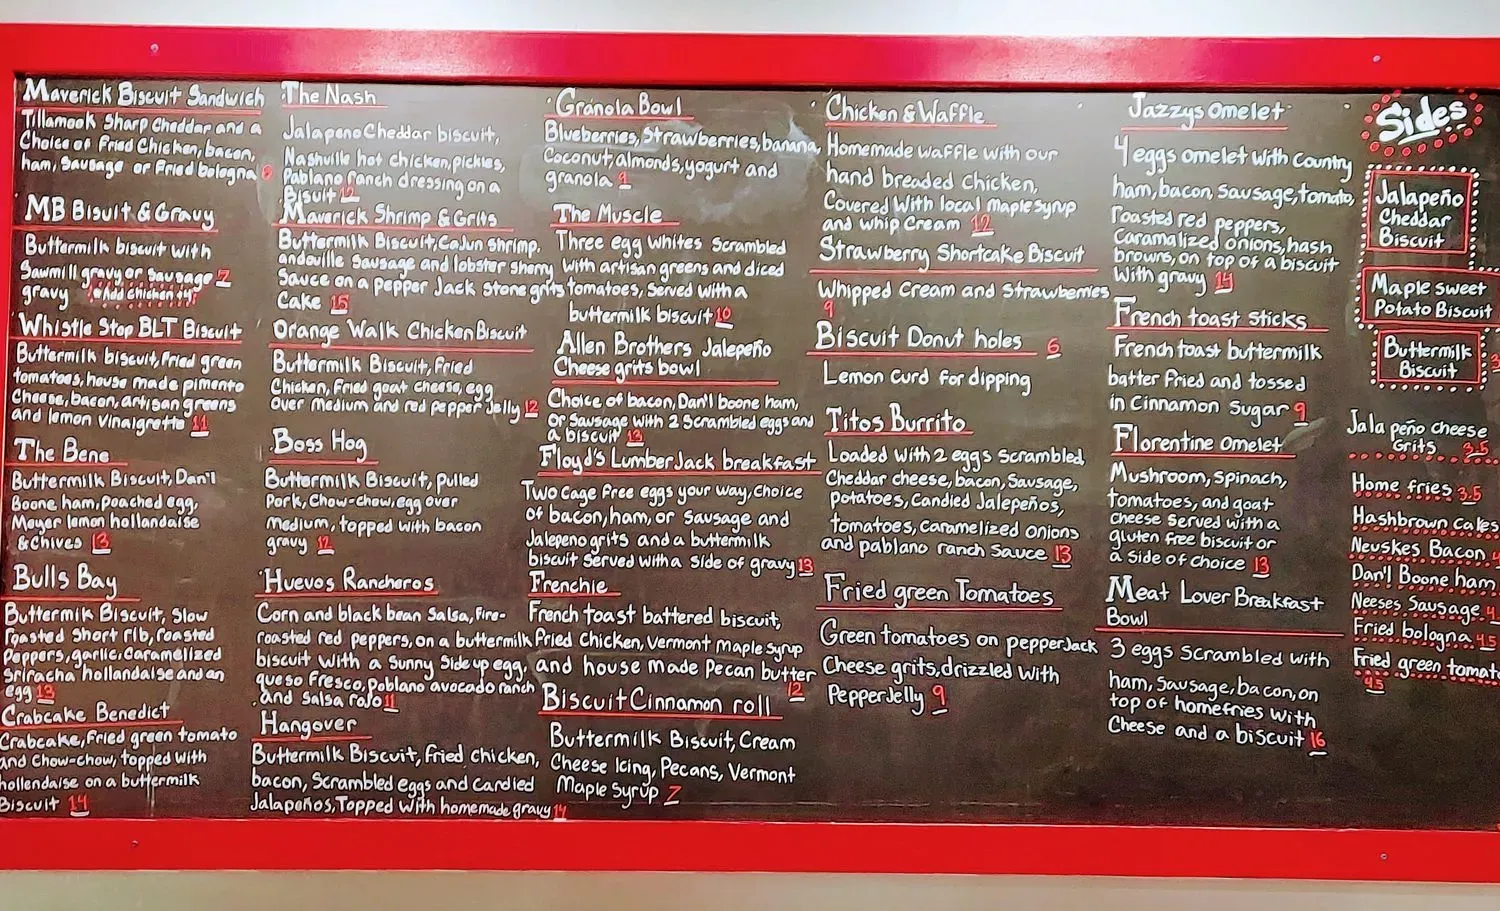 Maverick Biscuit Sandwich
Tillamook Sharp Cheddar and a
Choice of Fried Chicken, bacon,
ham, Sausage or Fried bologna 8
MB Bisuit & Gravy
Buttermilk biscuit with
Sawmill gravy or Sausage 7
gravy *Add chicken +4
Whistle Stop BLT Biscuit
Buttermilk biscuit, Fried green
tomatoes, house made pimento
Cheese, bacon, artisan greens
and lemon vinaigrette 11
The Bene
Buttermilk Biscuit, Dan'l
Boone ham, poached egg,
Meyer lemon hollandaise
& chives 13
Bulls Bay
Buttermilk Biscuit, Slow
roasted Short rib, roasted
Peppers, garlic, Caramelized
Sriracha hollandaise and an
egg 13
Crabcake Benedict
Crabcake, Fried green tomato
and Chow-chow, topped with
hollendaise on a buttermilk
Biscuit 14
The Nash
Jalapeno Cheddar biscuit,
Nashville hot chicken, pickles,
Pablano ranch dressing on a
Bisuit 12
Maverick Shrimp & Grits
Buttermilk Biscuit, Cajun Shrimp,
andouille Sausage and lobster sherry
Sauce on a pepper Jack Stone grits
Cake 15
Orange Walk Chicken Biscuit
Buttermilk Biscuit, Fried
Chicken, Fried goat cheese, egg
Over medium and red pepper Jelly 12
Boss Hog
Buttermilk Biscuit, pulled
Pork, Chow-chow, egg over
medium, topped with bacon
gravy 12
Huevos Rancheros
Corn and black bean Salsa, Fire-
roasted red peppers, on a buttermilk
biscuit with a Sunny Side up egg,
queso Fresco, Poblano avocado ranch
and Salsa rojo 11
Hangover
Buttermilk Biscuit, Fried chicken,
bacon, Scrambled eggs and Candied
Jalapeños, Topped with homemade gravy 14
Granola Bowl
Blueberries, Strawberries, banana,
Coconut, almonds, yogurt and
granola 9
The Muscle
Three egg whites Scrambled
with artisan greens and diced
tomatoes, Served with a
buttermilk biscuit 10
Allen Brothers Jalepeño
Cheese grits bowl
Choice of bacon, Dan'l boone ham,
Or Sausage with 2 Scrambled eggs and
a biscuit 13
Floyd's LumberJack breakfast
Two Cage Free eggs your way, Choice
of bacon, ham, or Sausage and
Jalepeno grits and a buttermilk
biscuit Served with a Side of gravy 13
Frenchie
French toast battered biscuit,
Fried Chicken, Vermont Maple Syrup
and house made Pecan butter
12
Biscuit Cinnamon roll
Buttermilk Biscuit, Cream
Cheese Icing, Pecans, Vermont
Maple Syrup 7
Chicken & Waffle
Homemade waffle with our
hand breaded Chicken,
Covered With local maple syrup
and whip Cream 12
Strawberry Shortcake Biscuit
Whipped Cream and Strawberries
9
Biscuit Donut holes 6
Lemon Curd for dipping
Titos Burrito
Loaded with 2 eggs Scrambled
Cheddar cheese, bacon, Sausage,
potatoes, Candied Jalepeños,
tomatoes, Caramelized onions
and pablano ranch Sauce 13
Fried green Tomatoes
Green tomatoes on pepperJack
Cheese grits, drizzled with
PepperJelly 9
Jazzys Omelet
4 eggs omelet with Country
ham, bacon, Sausage, tomato,
roasted red peppers,
Caramalized onions, hash
browns, on top of a biscuit
with gravy 14
French toast Sticks
French toast buttermilk
batter Fried and tossed
in Cinnamon Sugar 9
Florentine Omelet
Mushroom, Spinach,
tomatoes, and goat
cheese Served with a
gluten free biscuit or
a Side of choice 13
Meat Lover Breakfast
Bowl
3 eggs Scrambled with
ham, Sausage, bacon, on
top of homefries with
Cheese and a biscuit 16
Sides
Jalapeño
Cheddar
Biscuit
Maple Sweet
Potato Biscuit
Buttermilk
Biscuit
Jalapeño cheese
Grits 3.5
Home fries 3.5
Hashbrown Cakes
Neuskes Bacon
Dan'l Boone ham
Neeses Sausage 4
Fried bologna 4.5
Fried green tomato
4.5